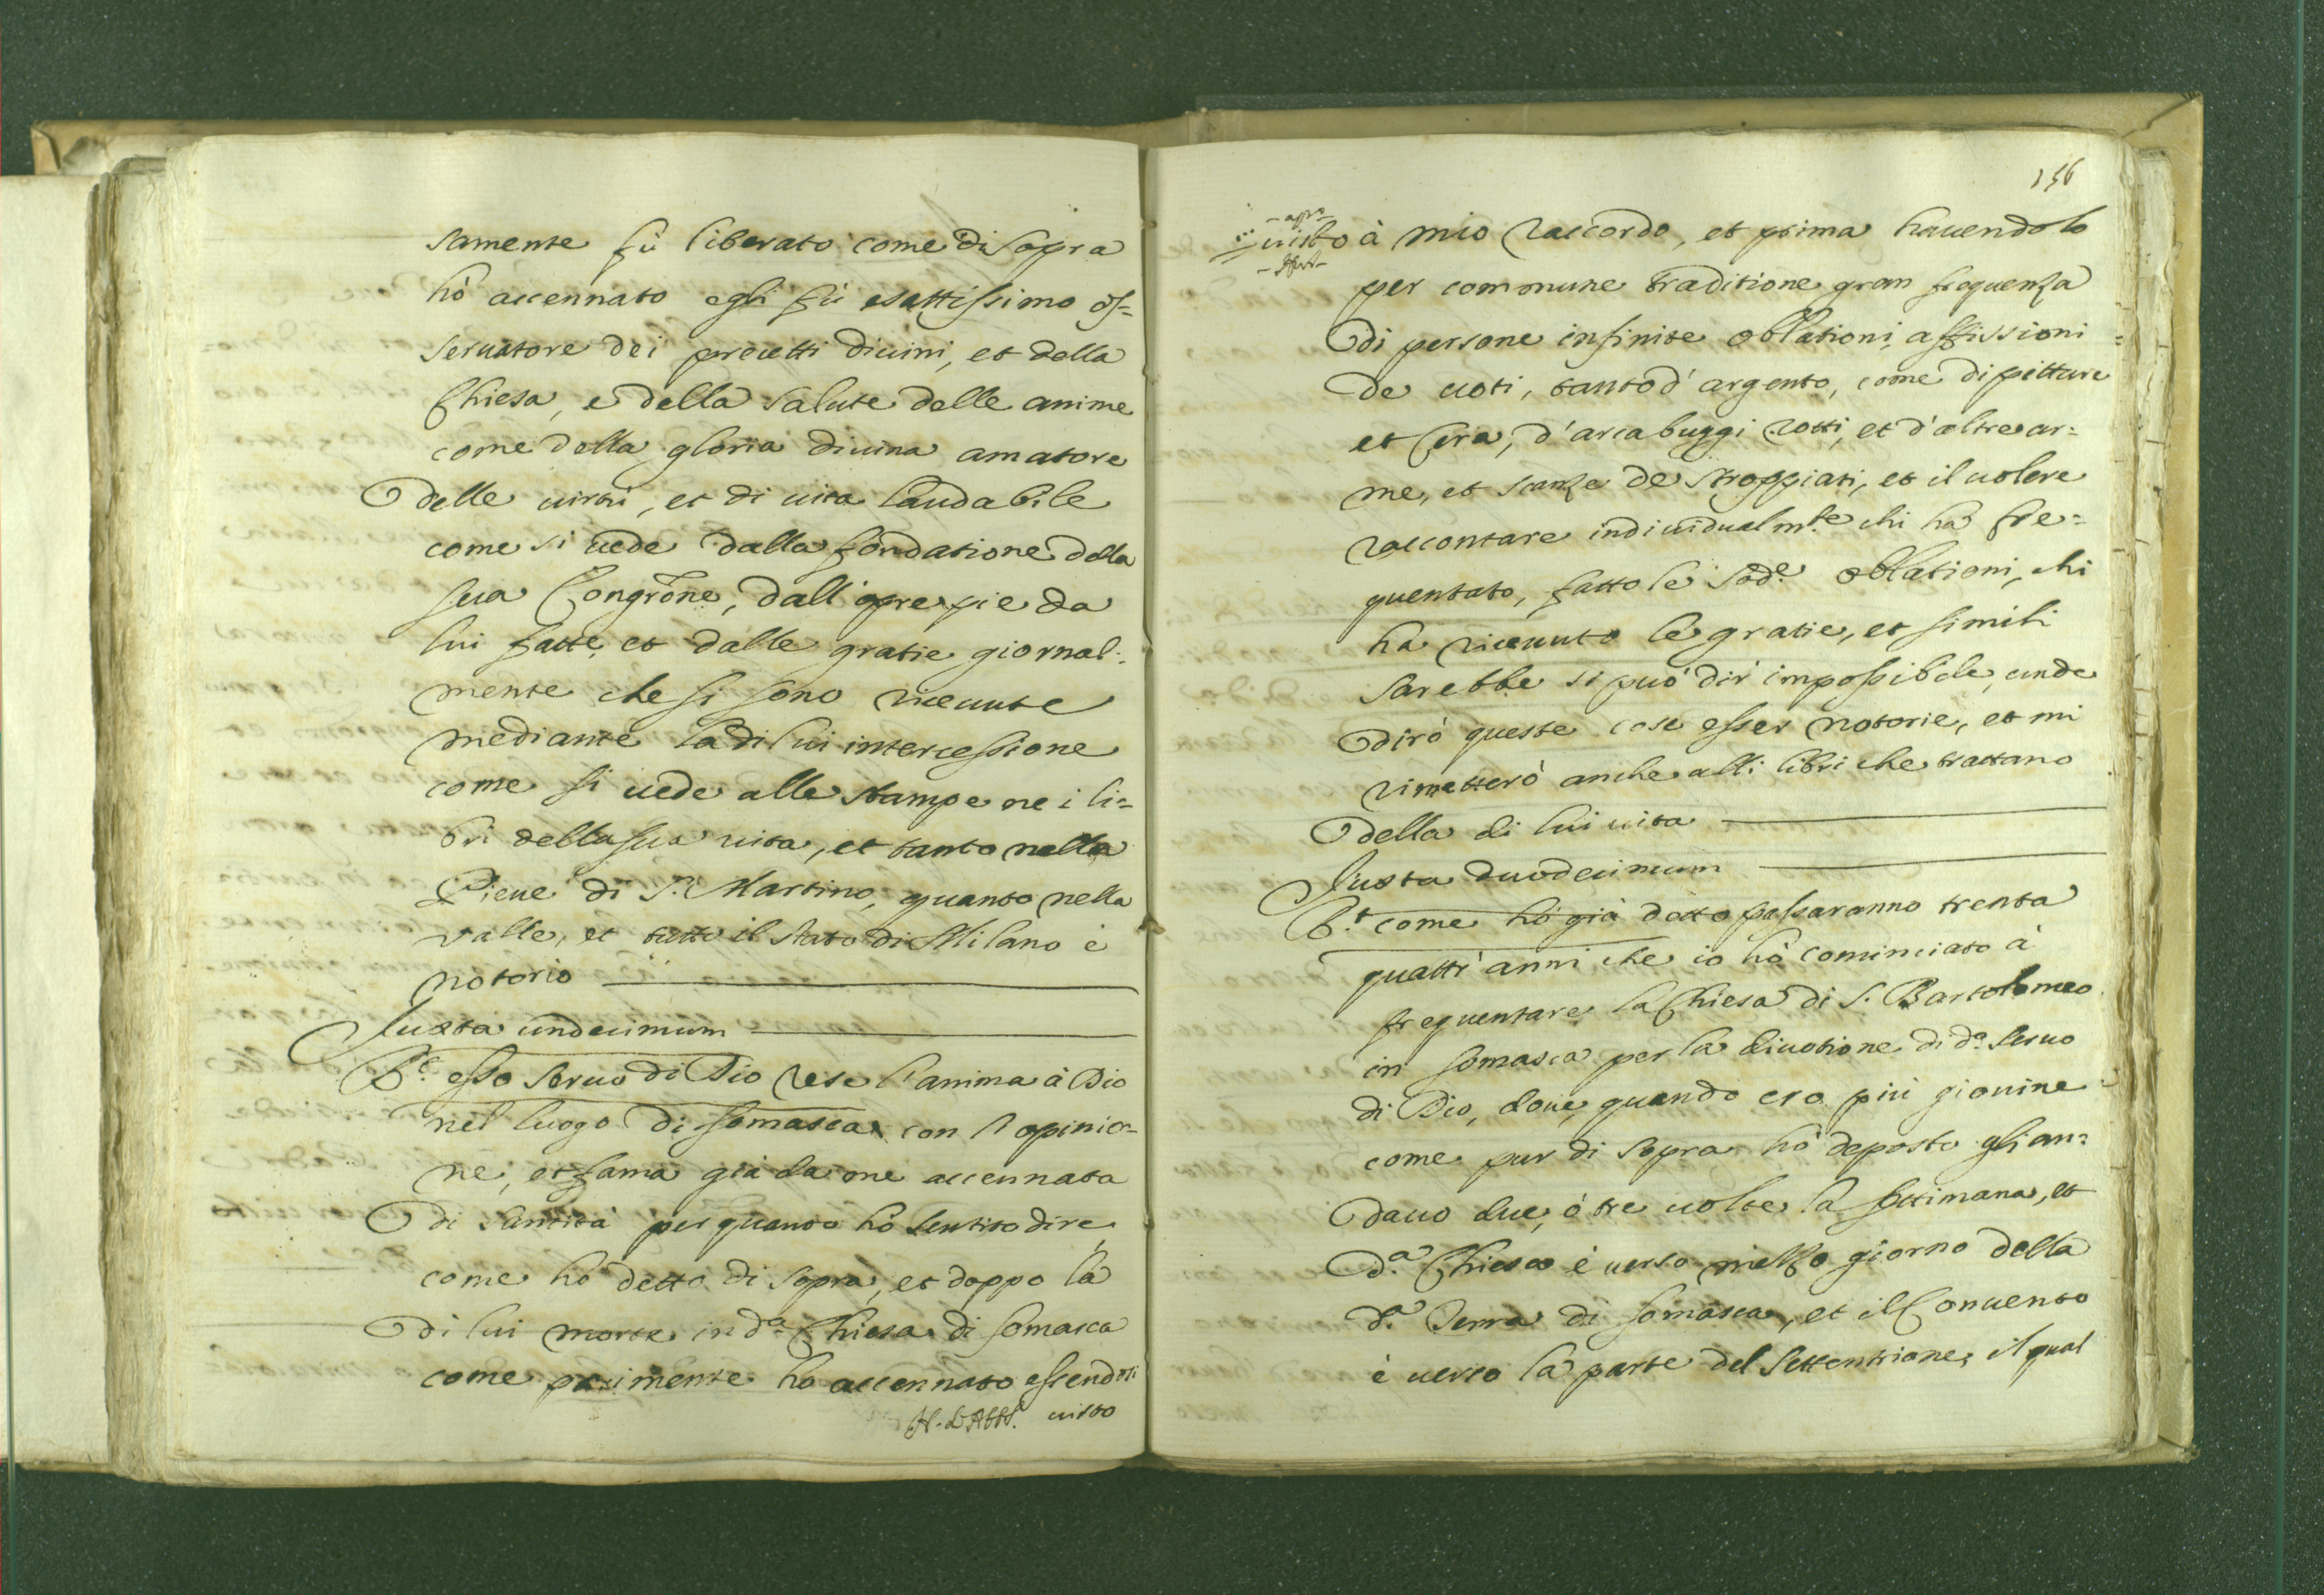 samente fù liberato come di sopra
hò accennato egli fù esattissimo os=
seruatore dei precetti diuini, et della
Chiesa, e della salute delle anime
come della gloria diuina amatore
delle uirtù, et di uita laudabile
come si uede dalla fondatione della
sua Congrõne, dall'opre pie da
lui fatte, et dalle gratie giornal=
mente che si sono riceuute
mediante la di lui intercessione
come si uede alle stampe ne i li=
bri della sua uita, et tanto nella
Pieue di S. Martino, quanto nella
valle, et tutto il stato di Milano è
notorio
Juxta undecimum
R.t esso seruo di Dio rese l'anima à Dio
nel luogo di Somasca con l'opinio=
ne, et fama già da me accennata
di santità per quanto hò sentito dire
come hò detto di sopra, et doppo la
di lui morte in d.a Chiesa di Somasca
come parimente ho accennato essendosi
uisto
156
uisto à mio raccordo, et prima hauendolo
per commune traditione gran frequenza
di persone infinite oblationi, affissioni
de uoti, tanto d'argento, come di pitture
et Cera, d'arcabuggi rotti, et d'altre ar=
me, et scanze de stroppiati, et il uolere
raccontare indiuidualm.te chi hà fre=
quentato, fatto le sod.e oblationi, chi
ha riceuuto le gratie, et simili
sarebbe si può dir impossibile, unde
dirò queste cose esser notorie, et mi
rimetterò anche alli libri che trattano
della di lui uita
Juxta duodecimum
R.t come hò già detto passaranno trenta
quattr'anni che io hò cominciato à
frequentare la Chiesa di S. Bartolomeo
in Somasca per la diuotione di d.o seruo
di Dio, doue, quando ero più giouine
come pur di sopra hò deposto gli an=
dauo due, ò tre uolte la settimana, et
d.a Chiesa è uerso mezzo giorno della
d.a Terra di Somasca, et il Conuento
è uerso la parte del Settentrione, il qual